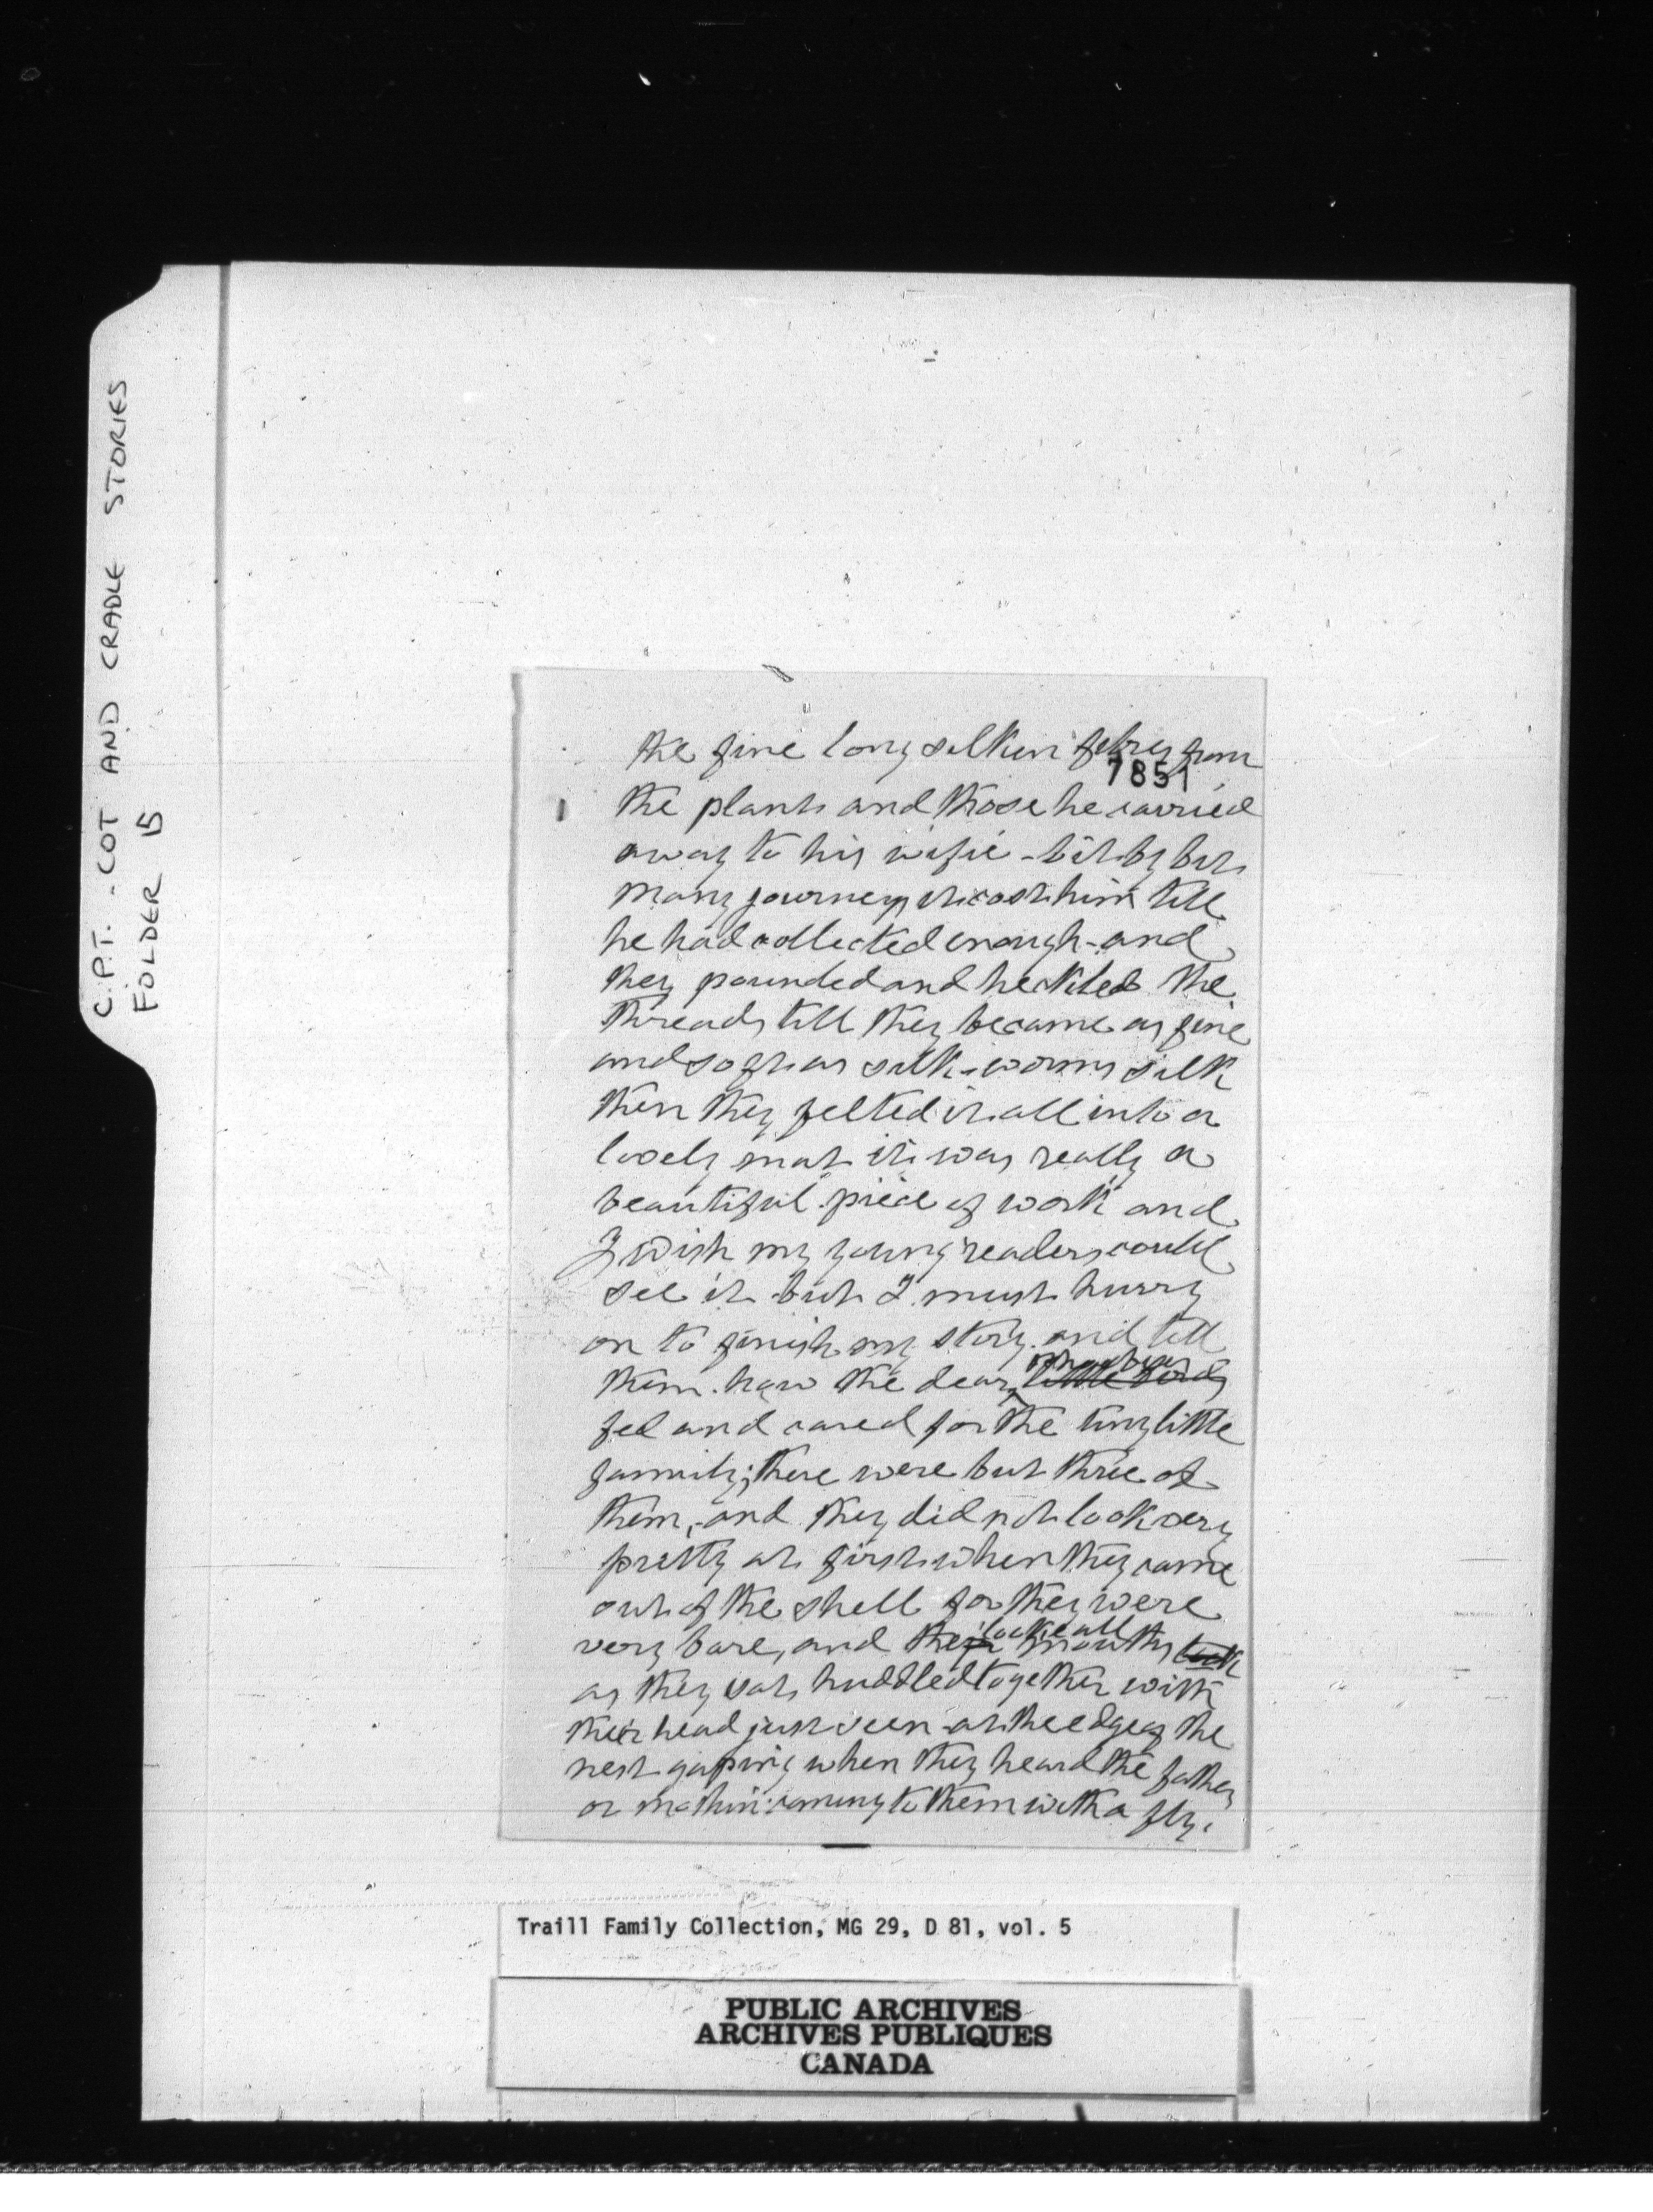 C.P.T. - COT AND CRADLE STORIES
FOLDER 15
the fine long silken febres from
7851
the plants and those he carried
away to his wifie - bit by bit
many journeys it cost him till
he had collected enough - and
they pounded and heckled the
threads till they became as fine
and soft as silk-worms silk
then they felted it all into a
lovely mat it was really a
beautiful piece of work and
I wish my young readers could
see it but I must hurry
on to finish my story and tell
them how the dear little birds
fed and cared for the tiny little
family; there were but three of
them, and they did not look very
pretty at first when they came
out of the shell for they were
looke all
very bare, and their mouths look
as they sat huddled together with
their head just seen at the edge of the
nest gaping when they heard the father
or mother coming to them with a fly.
Traill Family Collection, MG 29, D 81, vol. 5
PUBLIC ARCHIVES
ARCHIVES PUBLIQUES
CANADA